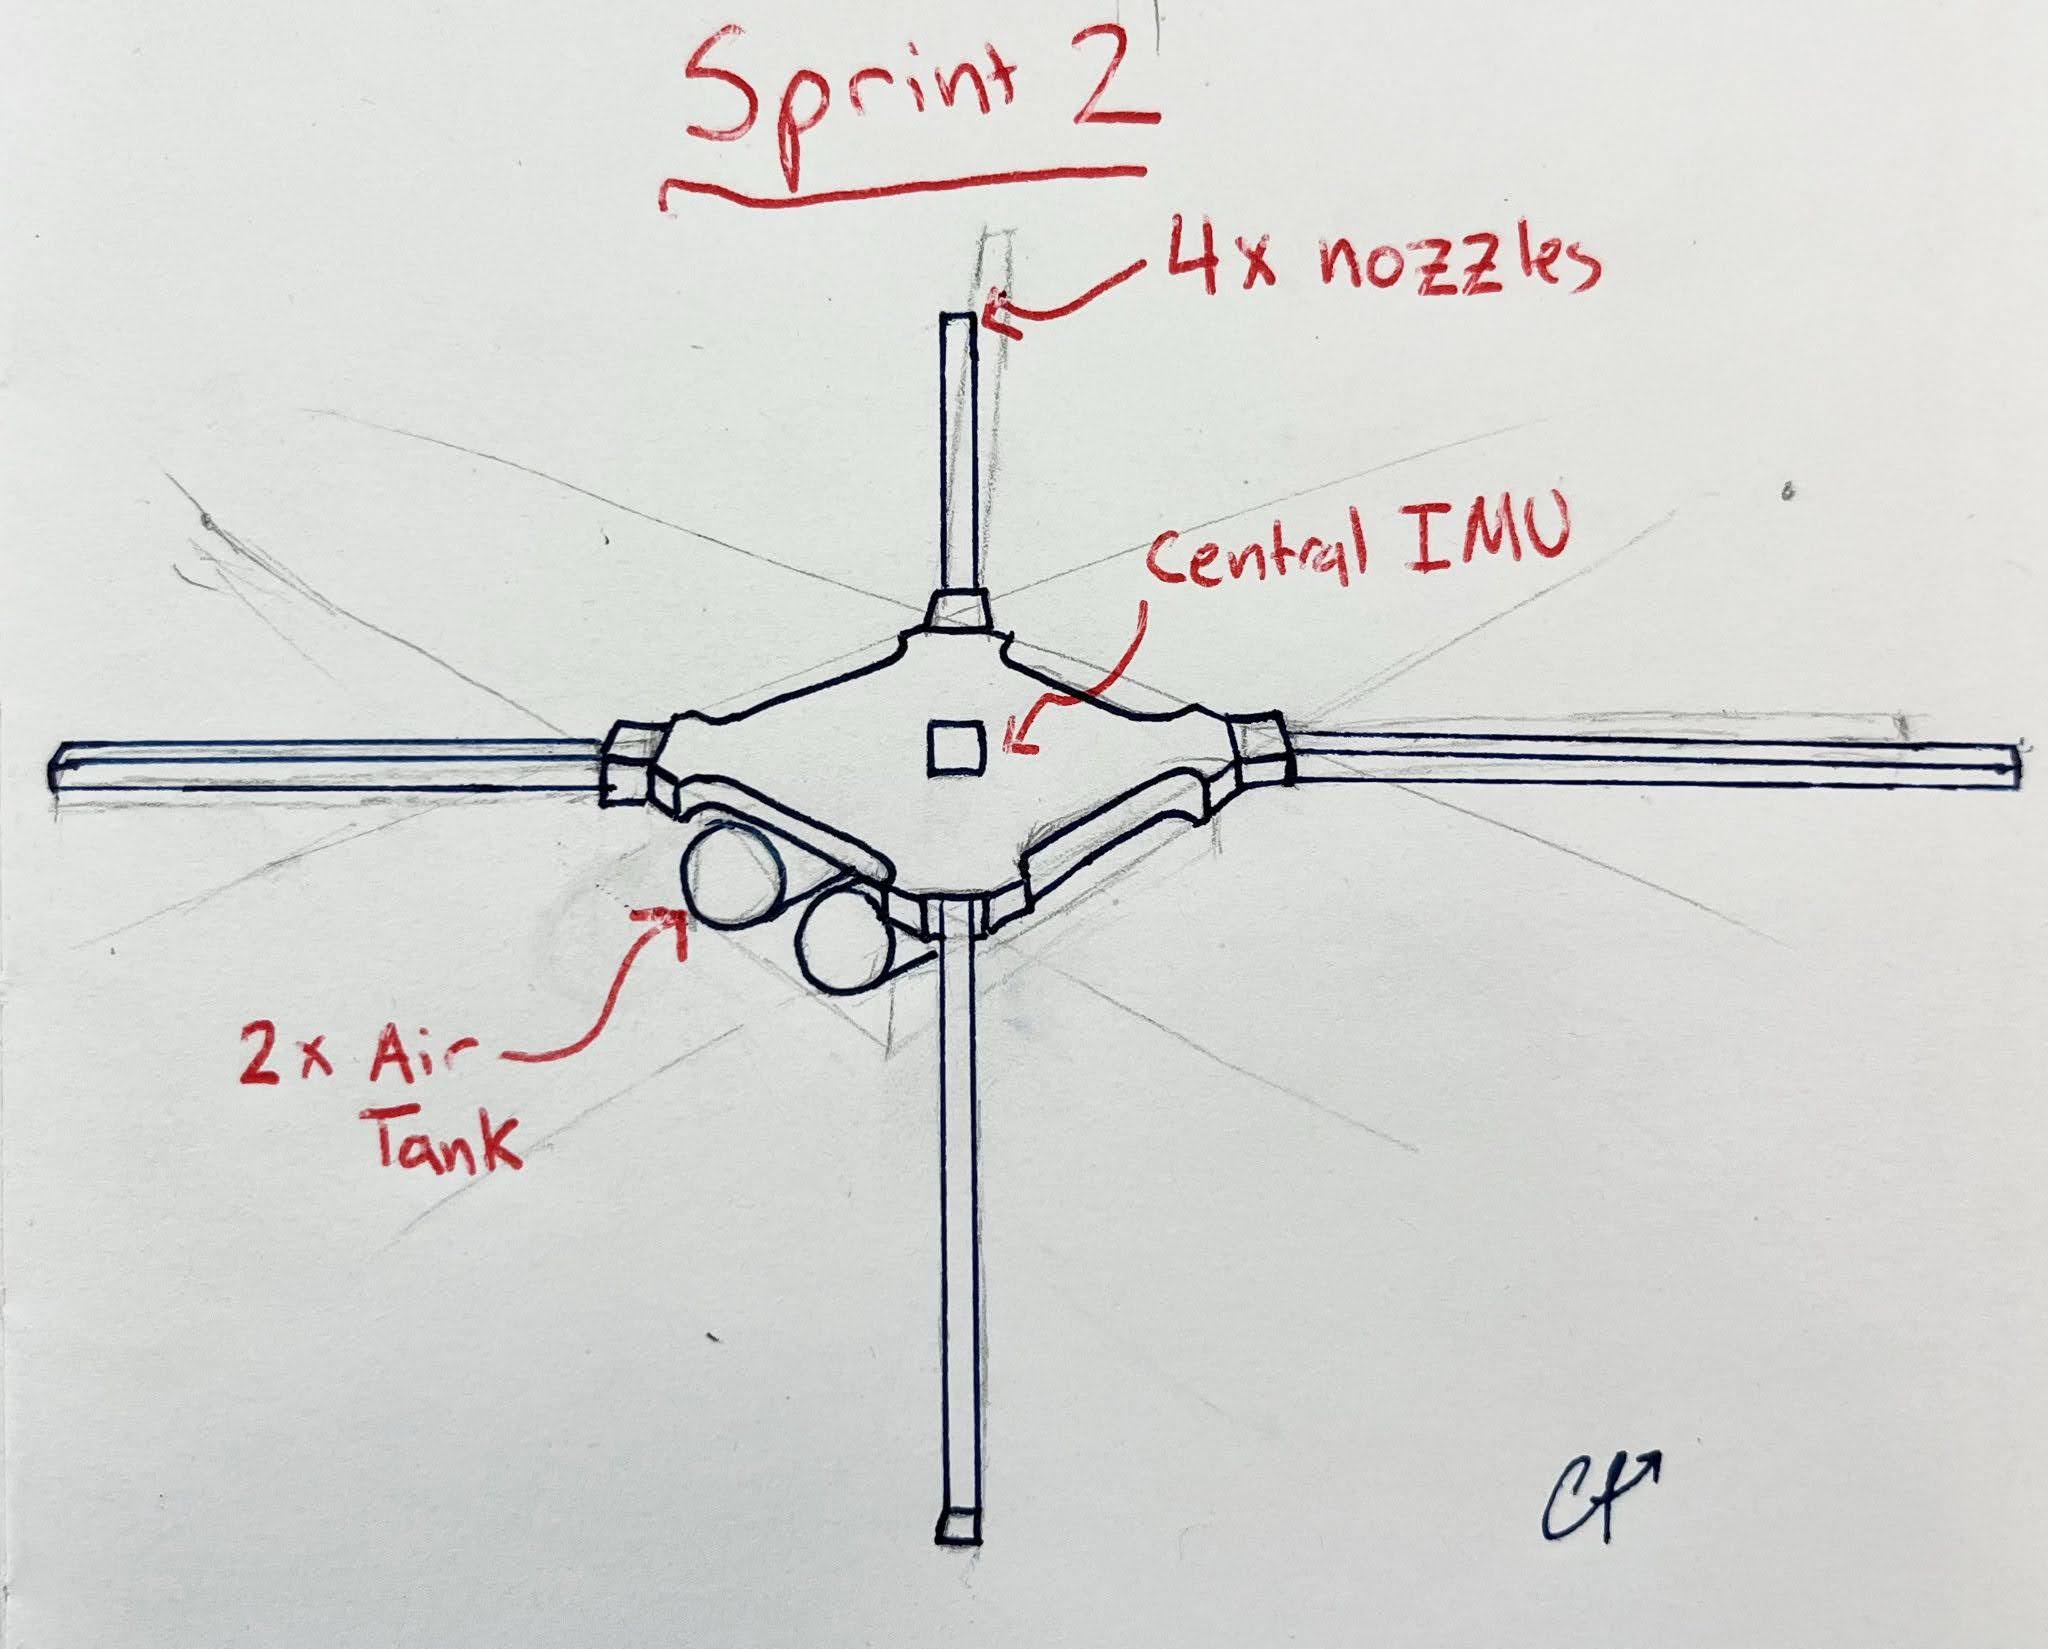 Sprint 2
4x nozzles
Central IMU
2x Air
Tank